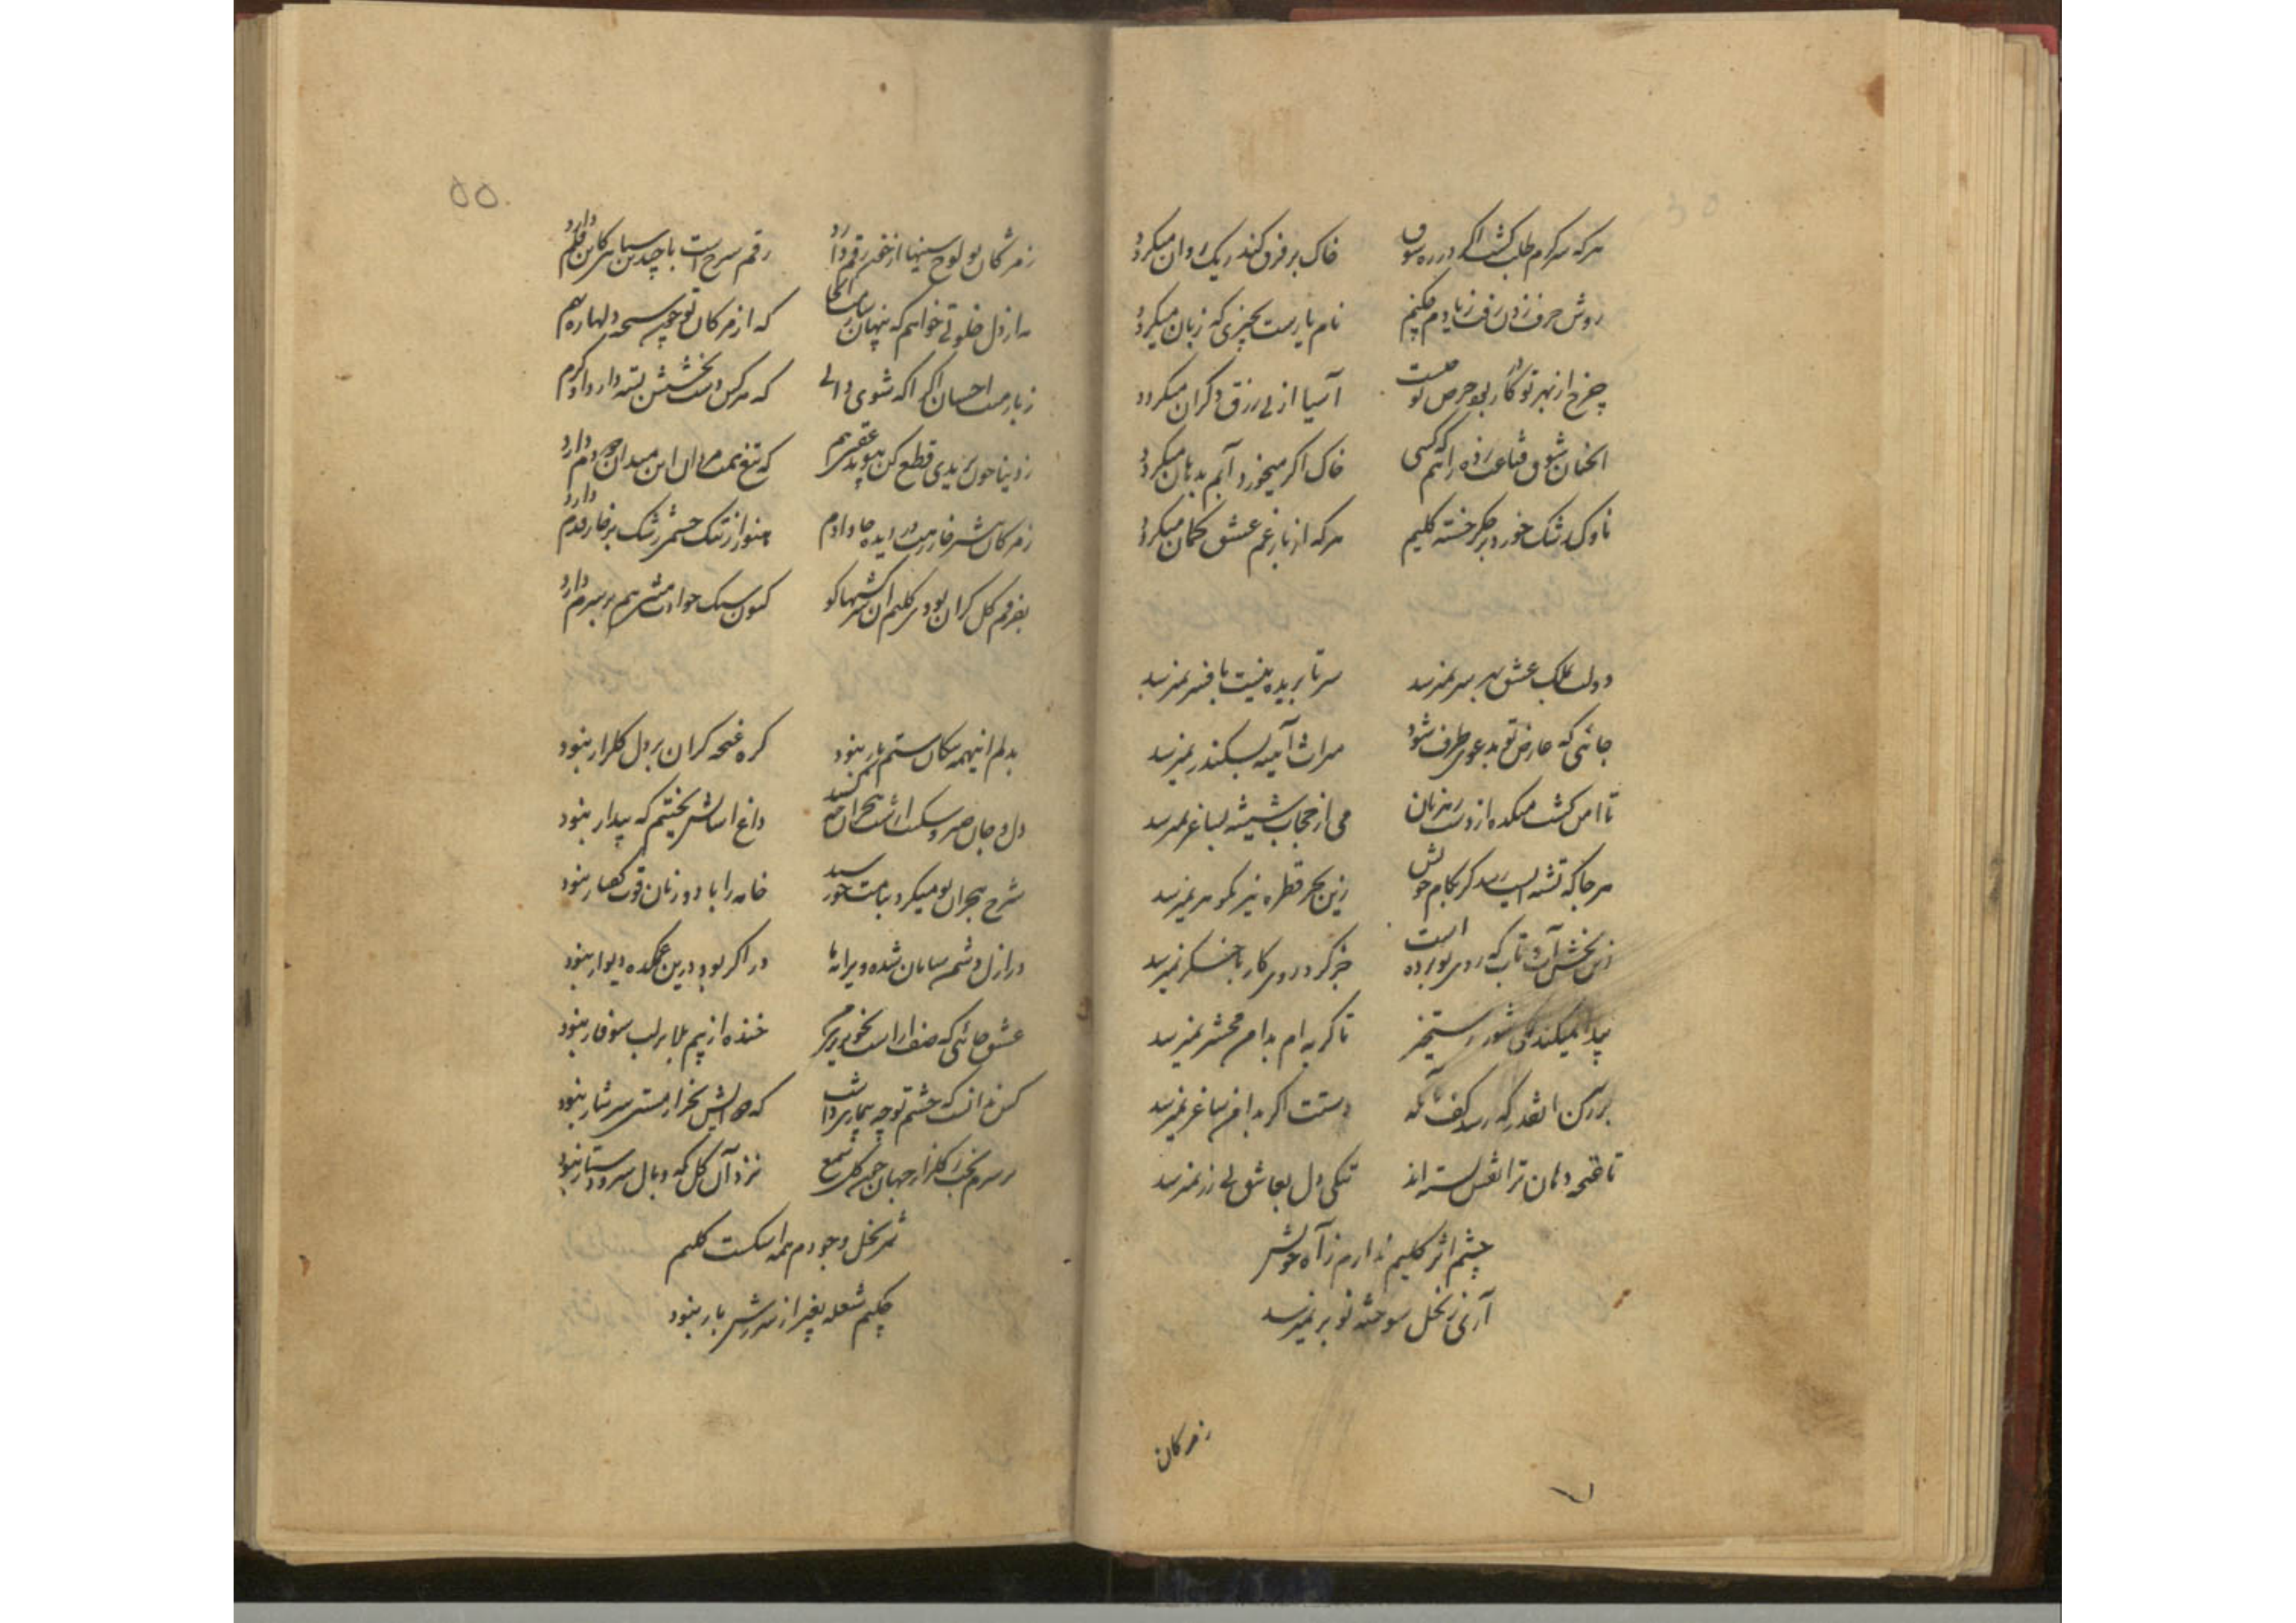 هرکه سرگرم طلب گشت اگر در ره شوق خاک بر فرق کند ریک روان میگردد
روش حرف زدن رفت ز یادم چکنم نام یارست بچیزی که زبان میگردد
چرخ از بهر تو در کار بود حرص تو چیست آسیا از پی رزق دگران میگردد
آنچنان شوق قناعت زده راهم که کسی خاک اگر میخورد آبم بدهان میگردد
ناوک رشک خورد بر جگر خسته کلیم هرکه از بار غم عشق کمان میگردد
دولت بملک عشق بهر سر نمیرسد سر تا بریده نیست بافسر نمیرسد
جائی که عارض تو بدعوی طرف شود میراث آینه بسکندر نمیرسد
تا امن گشت میکده از دست رهزنان می از حجاب شیشه بساغر نمیرسد
هرجا که تشنه ایست رسد گر بکام خویش زین بحر قطره نیز بگوهر نمیرسد
زین بخش آب و تاب که روی تو برده است جز گرد روی کار باخگر نمیرسد
پیدا نمیکند شور رستخیز تا گریه ام بدامن محشر نمیرسد
پر کن انقدر که رسد کف بآبله دستت اگر بدامن ساغر نمیرسد
تا غنچه دهان ترا نقش بسته اند تنگی دل بعاشق بی زر نمیرسد
چشم اثر کلیم ندارم ز آه خویش
آری ز نخل سوخته نو بر نمیرسد
ز مژگان
۵۵
ز مژگان تو لوح سینها از خون رقم دارد رقم سرخ است با چندین سیاهی کاین قلم دارد
ز دل خلوتی خواهم که پنهان که از مژگان تو چون سبحه دلها ره بهم
ز بار منت احسان اگر آگه شوی دانی که هرکس دست بخشش بسته دارد او کرم
ز دنیا چون بریدی قطع کن پیوند عقبی هم که تیغ همت مردان این میدان دو دم دارد
ز مژگان بیشتر خار رهت در دیده جا دادم هنوز از تنگ چشمی رشک بر خار قدم دارد
بفرقم گل گران بودی کلیم آن سرکشیها کو کنون سنگ حوادث منتی هم بر سرم دارد
بدلم اینهمه پیکان ستم بار نبود گره غنچه گران بر دل گلزار نبود
دل و جان صبر و سکون داغ بختم که بیدار نبود
شرح هجران تو میکرد بپایان چو رسید خامه را با دو زبان قوت گفتار نبود
در ازل قسمت سامان شده ویرانه ما در اگر بود درین غمکده دیوار نبود
عشق جائی که صف آراست خنده از بیم بلا بر لب سوفار نبود
کس ندانست که چشم تو چه بیماری داشت که دوایش بجز از مستی سرشار نبود
بر سرم بخت ز گلزار جهان چون گل شمع نزد آن گل که وبال سر و دستار نبود
ثمر نخل وجودم همه اشکست کلیم
چکنم شعله بغیر از شررش بار نبود